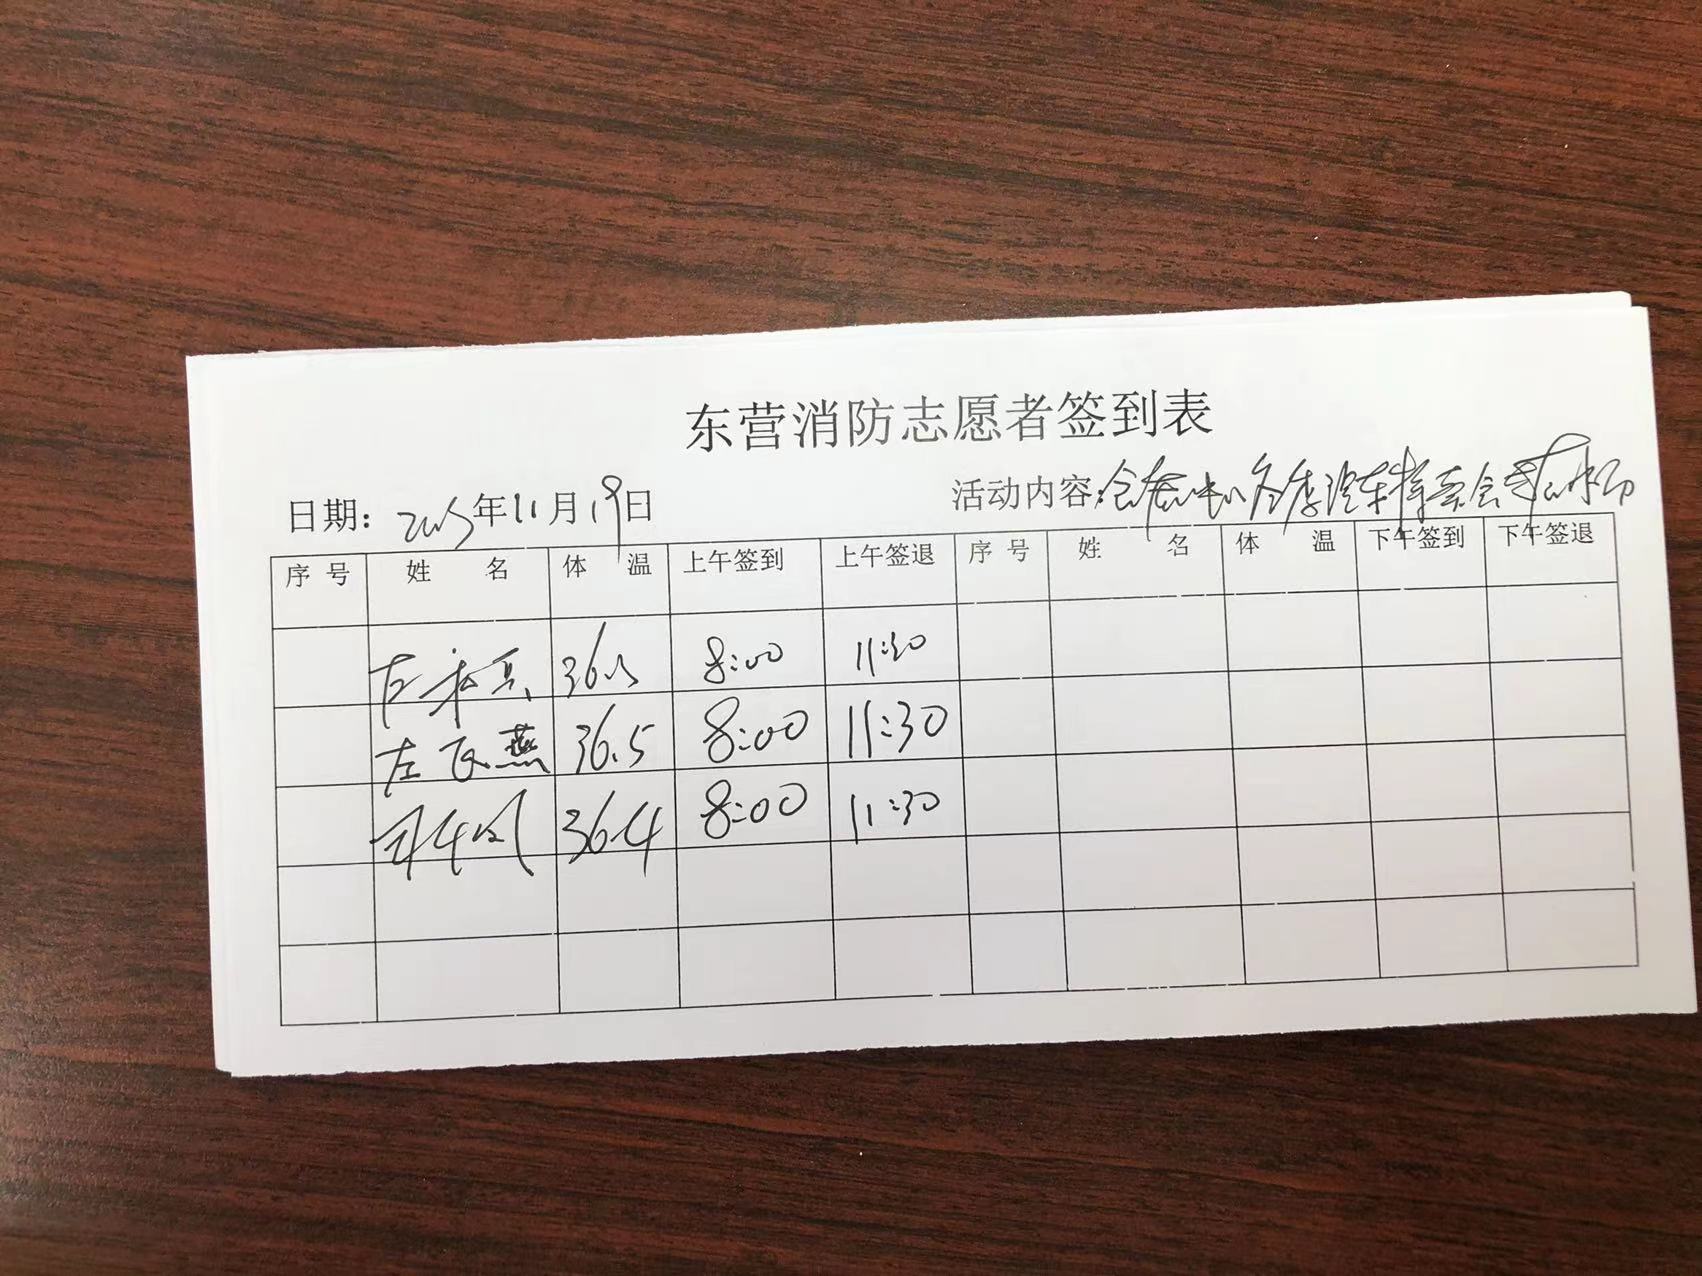 东营消防志愿者签到表
日期: 年11月19日 活动内容: 会展中心冬季汽车博览会
序号 姓名 体温 上午签到 上午签退 序号 姓名 体温 下午签到 下午签退
36.5 8:00 11:30
左 燕 36.5 8:00 11:30
36.4 8:00 11:30